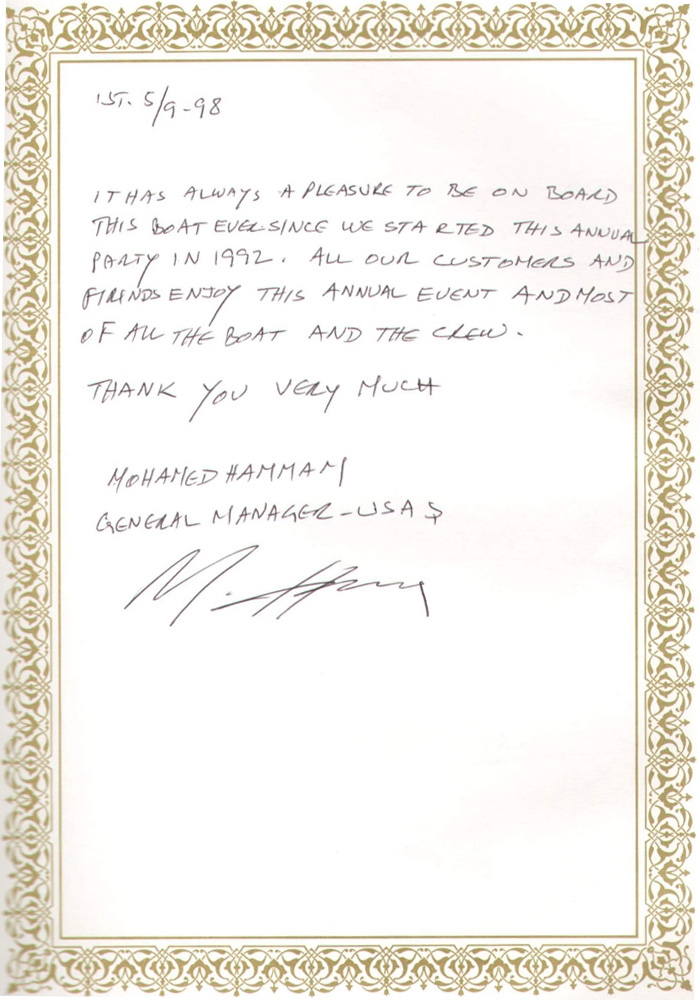 IST. 5/9-98
IT HAS ALWAYS A PLEASURE TO BE ON BOARD
THIS BOAT EVER SINCE WE STARTED THIS ANNUAL
PARTY IN 1992. ALL OUR CUSTOMERS AND
FIRENDS ENJOY THIS ANNUAL EVENT AND MOST
OF ALL THE BOAT AND THE CREW.
THANK YOU VERY MUCH
MOHAMED HAMMAMI
GENERAL MANAGER - USAŞ